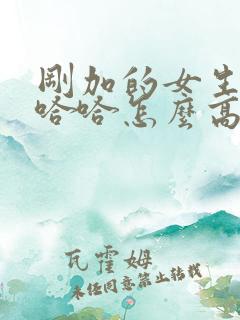 剛加的女生
哈哈怎麼高
瓦霍姆
未經同意禁止轉載